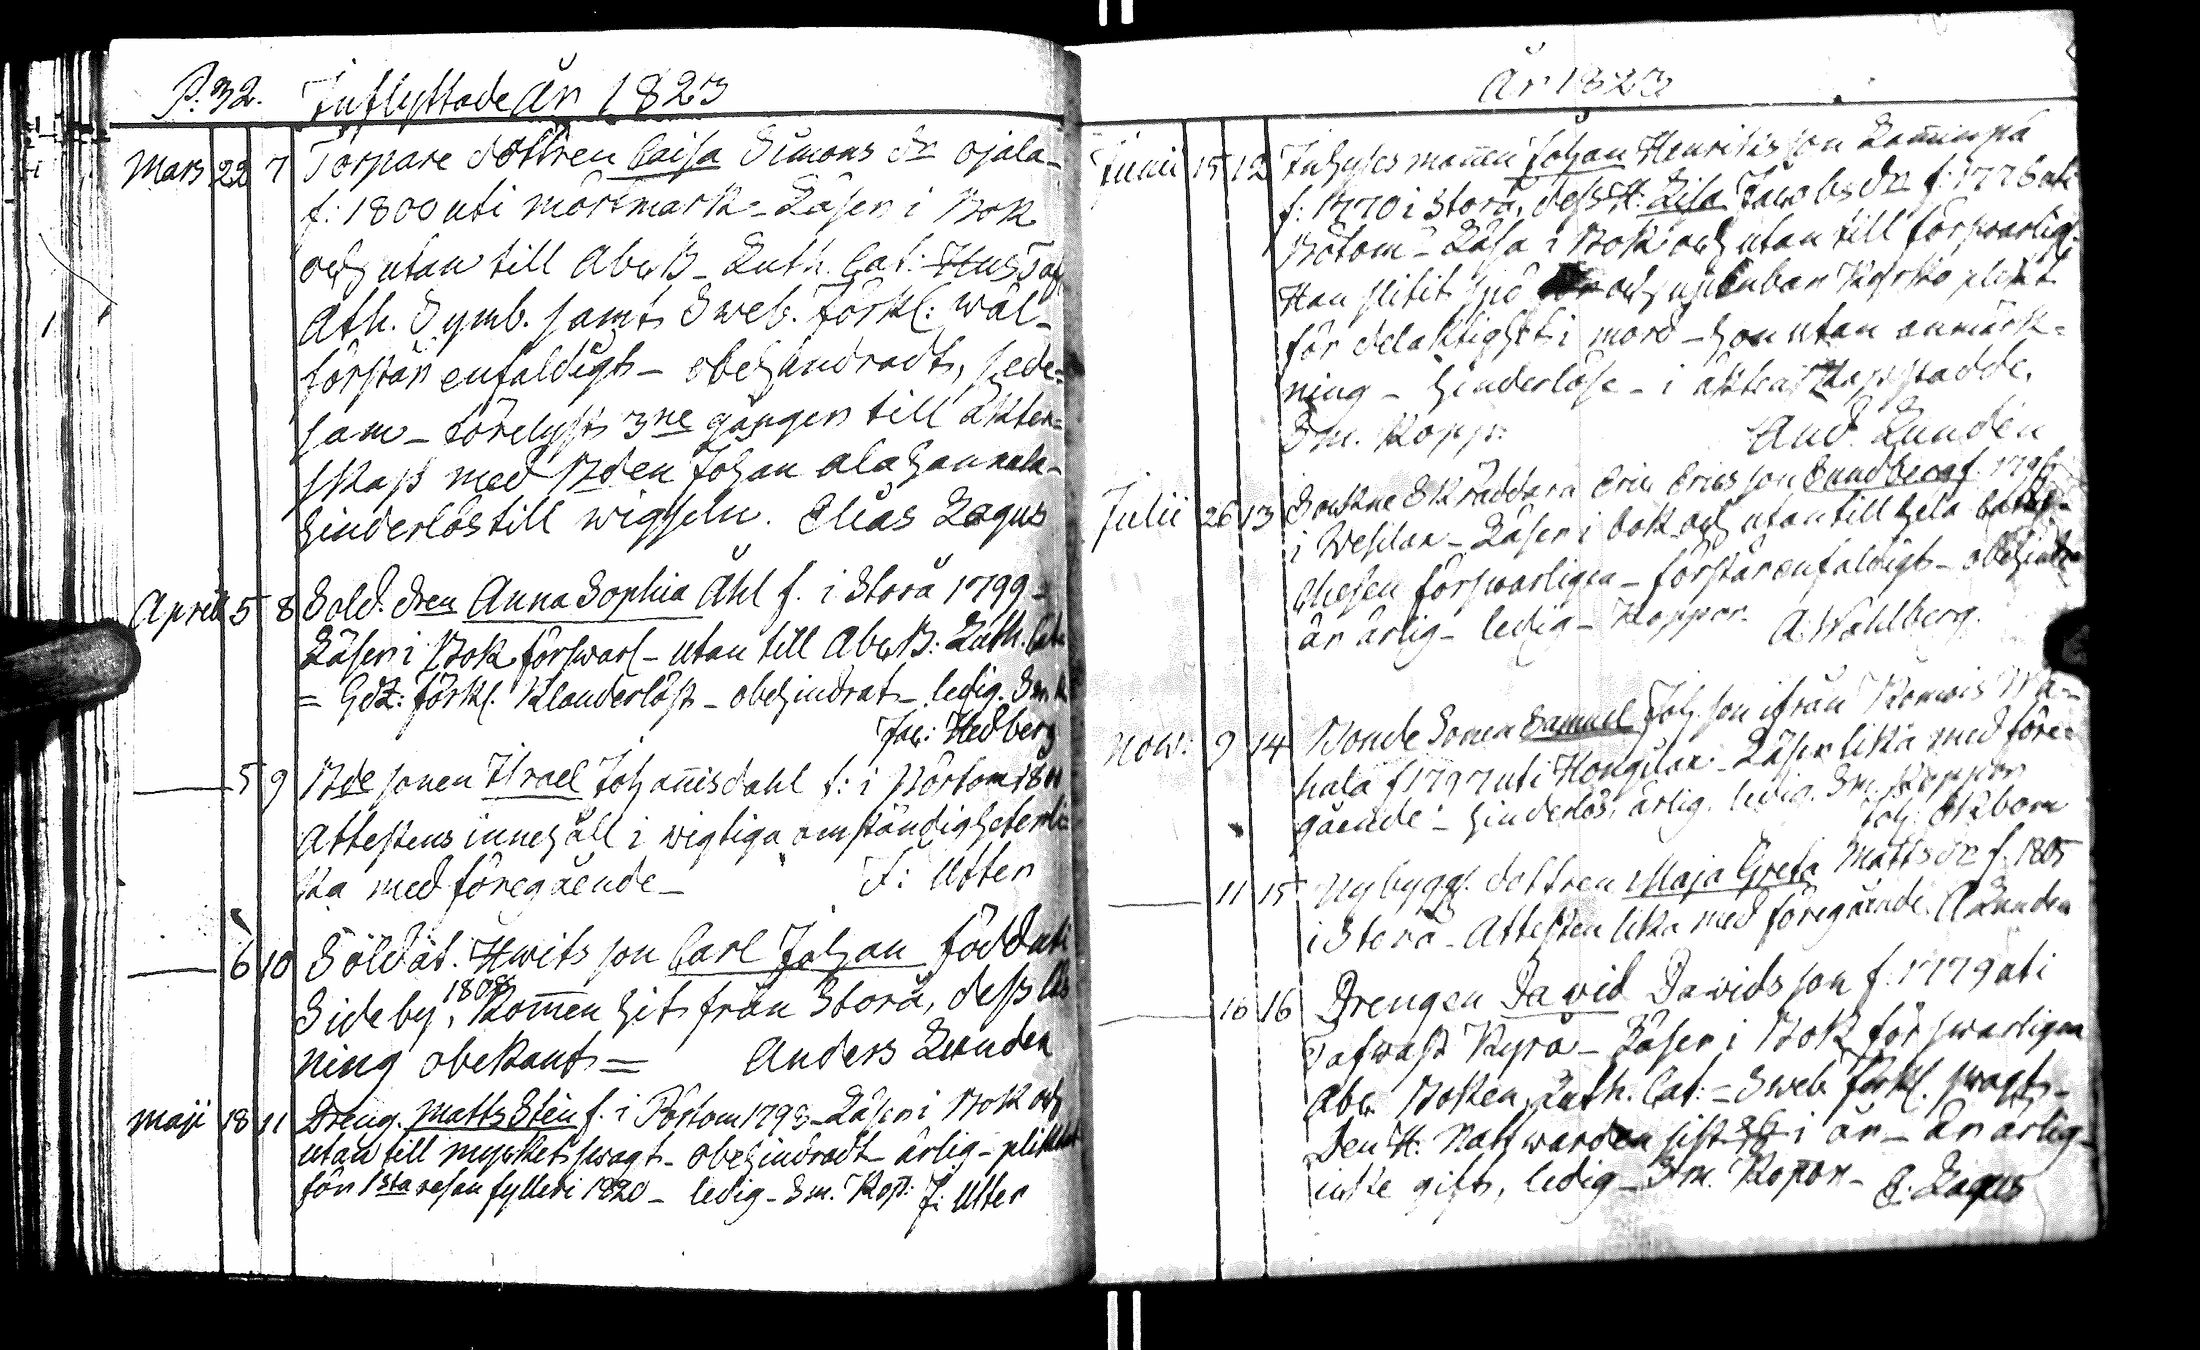 P. 32. Inflyttade År 1823
Mars 22 7 Torpare dottren Caisa Simons dr Ojala-
f: 1800 uti Mörtmark - Läser i Bok
och utan till Abc B - Luth. Cat: Hus Taf
Ath. Symb. samt Sweb. Förkl: wäl -
förstår enfaldigt - obehindradt, sede=
sam - förelyst 3ne gånger till ächten=
skap med Bden Johan
hinderlös till wigseln. Elias Lagus
April 5 8 Sold. dren Anna Sophia Åhl f. i Storå 1799 -
Läser i Bok förswarl - utan till Abc B: Luth. Cat
= förkl. Klanderlöst - obehindrat - ledig. Sm. K
Jac: Hedberg
5 9 Bde sonen Israel Johannisdahl f: i Pörtom 1801
Attestens innehåll i wigtiga omständigheter li=
ka med föregående - J: Utter
6 10 Soldat. Hwits son Carl Johan född uti
Sideby, 1808 Kommen hit från Storå, dess läs
ning obekant = Anders Lunden
Maji 18 11 Dreng. Matts Stén f. i Pörtom 1798 - Läser i Bok och
utan till mycket swagt - obehindradt ärlig - pliktat
för 1sta resan fylleri 1820 - ledig - Sm. Kop: J: Utter
År 1823
Junii 15 12 Inhyses mannen Johan Henriksson
f: 1770 i Storå, dess H: Lisa Jacobs dr f: 1776 uti
Bötom - Läsa i Bok och utan till förswarlig:
Han slitit spö och uppenbar Kyrko plikt
för delaktighet i mord - hon utan anmärk=
ning - hinderlöse - i äktenskap stadde.
Sm. Kopp: And. Lunden
Julii 26 13 Sockne Skräddaren Eric Ericsson Sundberg f. 1796
i Weselax - Läser i bok och utan till hela Catec-
chesen förswarligen - förstår enfaldigt - obehindr
är ärlig - ledig - Koppor. A: Wahlberg.
Now: 9 14 Bonde Sonen Samuel Joh. son ifrån
f 1797 uti Honguax - Läser lika med före=
gående - hinderlös, ärlig. ledig. Sm. Koppor
Joh: Ekbom
11 15 Nybygg. dottren Maja Greta Matts dr f. 1805
i Storå - Attesten lika med föregående. A Lunden
16 16 Drengen Dawid Dawids son f. 1779 uti
Tafwast Kyrö - Läser i Bok förswarligen
Abc Boken, Luth. Cat: = Sweb förkl. swagt -
Den H. Nattwarden sist i år - är ärlig -
icke gift, ledig - Sm. Kopor - E. Lagus